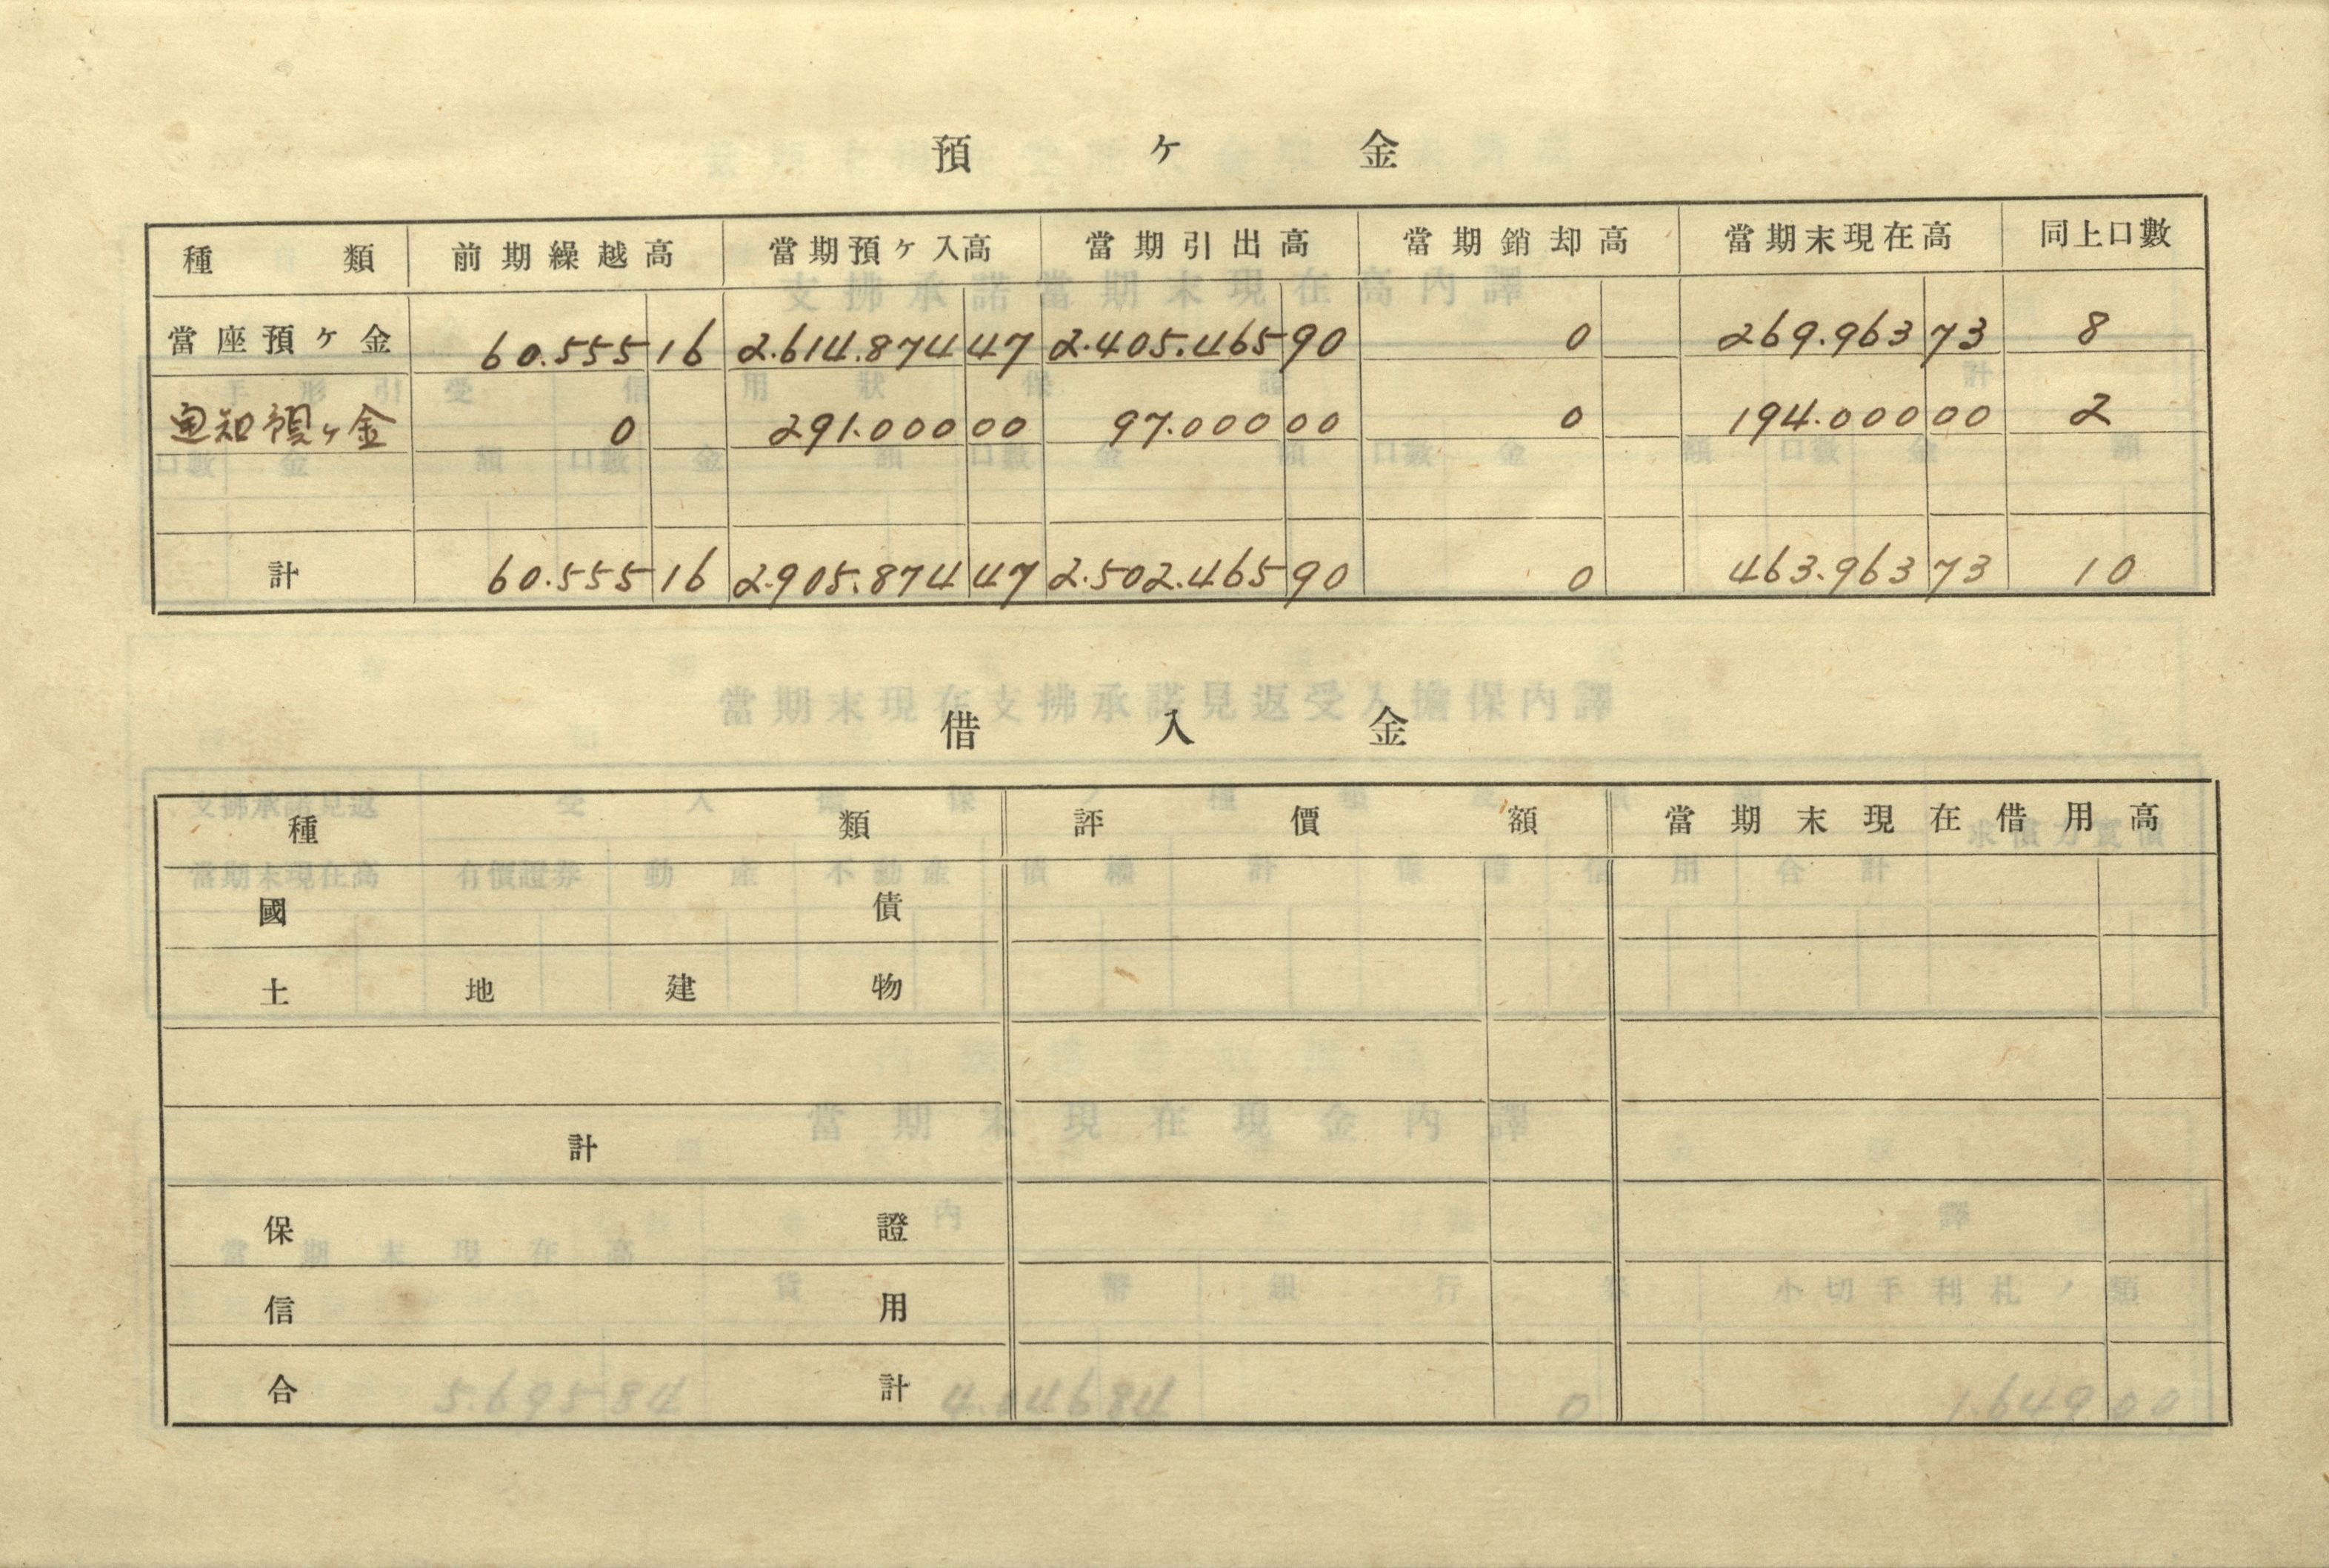 預ヶ金
種類 前期繰越高 當期預ヶ入高 當期引出高 當期銷却高 當期末現在高 同上口數
當座預ヶ金 60.555 16 2.614.874 47 2.405.465 90 0 269.963 73 8
通知預ヶ金 0 291.000 00 97.000 00 0 194.000 00 2
計 60.555 16 2.905.874 47 2.502.465 90 0 463.963 73 10
借入金
種類 評價額 當期末現在借用高
國債
土地建物
計
保證
信用
合計